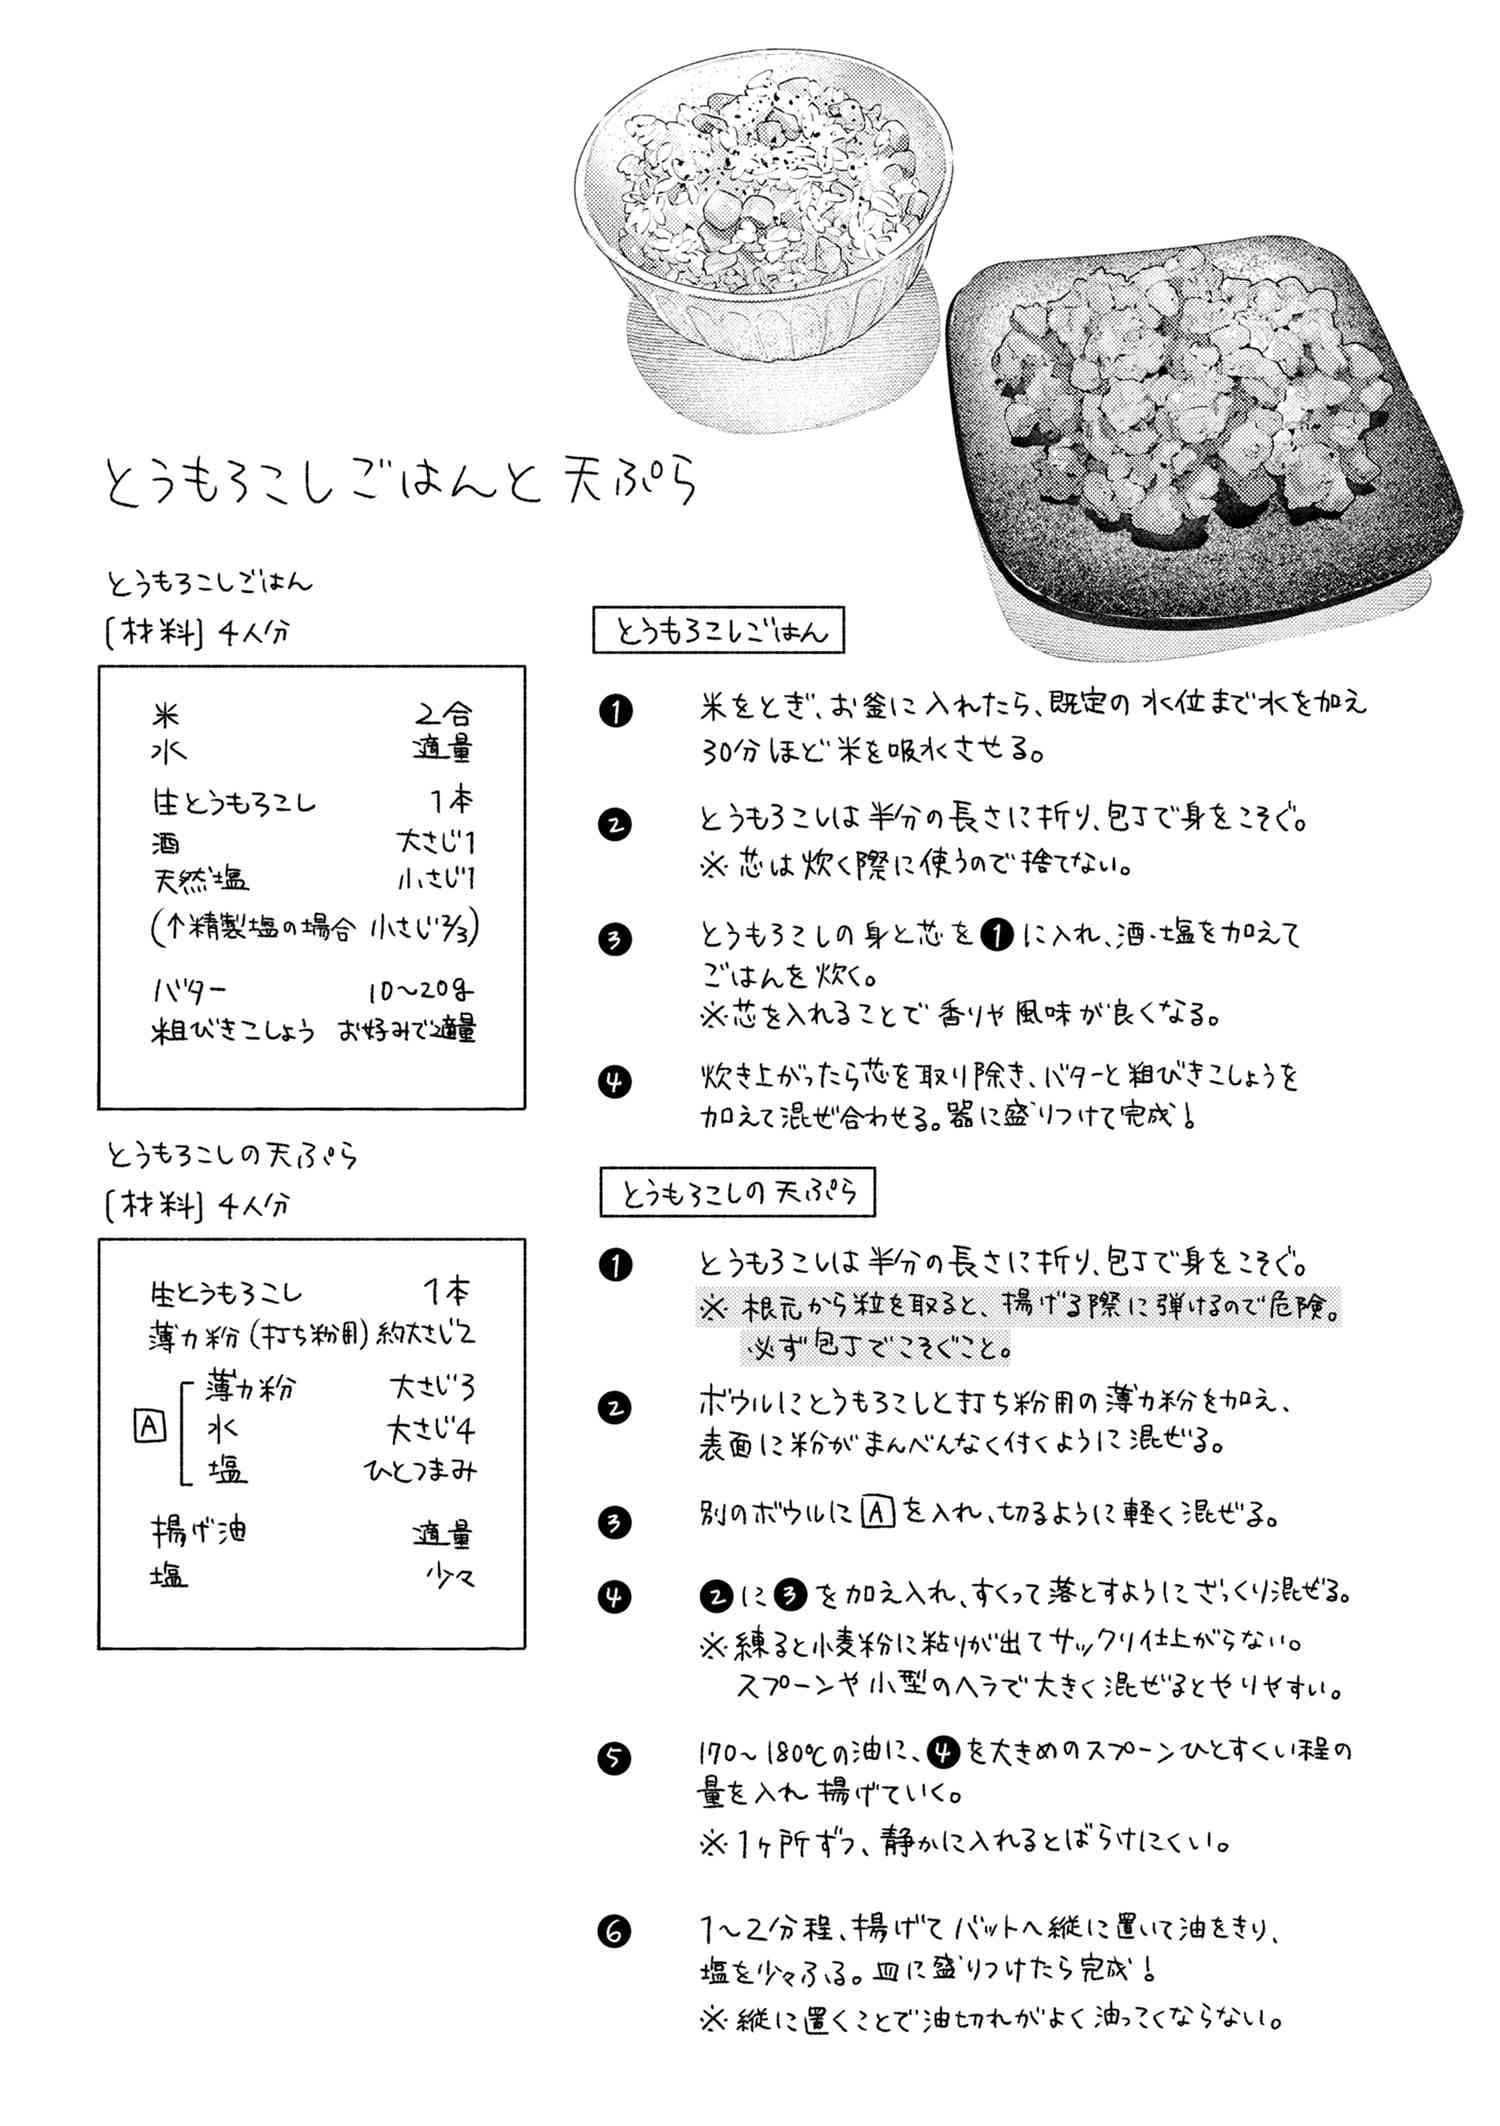 とうもろこしごはんと天ぷら
とうもろこしごはん
[材料] 4人分
米 2合
水 適量
生とうもろこし 1本
酒 大さじ1
天然塩 小さじ1
(↑精製塩の場合 小さじ2/3)
バター 10〜20g
粗びきこしょう お好みで適量
とうもろこしの天ぷら
[材料] 4人分
生とうもろこし 1本
薄力粉(打ち粉用) 約大さじ2
A
薄力粉 大さじ3
水 大さじ4
塩 ひとつまみ
揚げ油 適量
塩 少々
とうもろこしごはん
❶ 米をとぎ、お釜に入れたら、既定の水位まで水を加え
30分ほど米を吸水させる。
❷ とうもろこしは半分の長さに折り、包丁で身をこそぐ。
※芯は炊く際に使うので捨てない。
❸ とうもろこしの身と芯を❶に入れ、酒・塩を加えて
ごはんを炊く。
※芯を入れることで香りや風味が良くなる。
❹ 炊き上がったら芯を取り除き、バターと粗びきこしょうを
加えて混ぜ合わせる。器に盛りつけて完成!
とうもろこしの天ぷら
❶ とうもろこしは半分の長さに折り、包丁で身をこそぐ。
※根元から粒を取ると、揚げる際に弾けるので危険。
必ず包丁でこそぐこと。
❷ ボウルにとうもろこしと打ち粉用の薄力粉を加え、
表面に粉がまんべんなく付くように混ぜる。
❸ 別のボウルにAを入れ、切るように軽く混ぜる。
❹ ❷に❸を加え入れ、すくって落とすようにざっくり混ぜる。
※練ると小麦粉に粘りが出てサックリ仕上がらない。
スプーンや小型のヘラで大きく混ぜるとやりやすい。
❺ 170〜180℃の油に、❹を大きめのスプーンひとすくい程の
量を入れ揚げていく。
※1ヶ所ずつ、静かに入れるとばらけにくい。
❻ 1〜2分程、揚げてバットへ縦に置いて油をきり、
塩を少々ふる。皿に盛りつけたら完成!
※縦に置くことで油切れがよく油っこくならない。